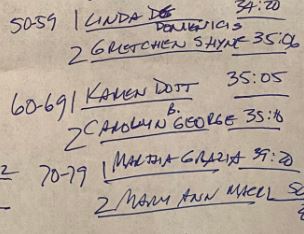 50-59 1 LINDA DE 34:20
DOMENICIS
2 GRETCHEN SHYNE 35:06
60-69 1 KAREN DOTT 35:05
2 CAROLYN B. GEORGE 35:10
70-79 1 MARTHA GRAZIA 39:20
2 MARY ANN